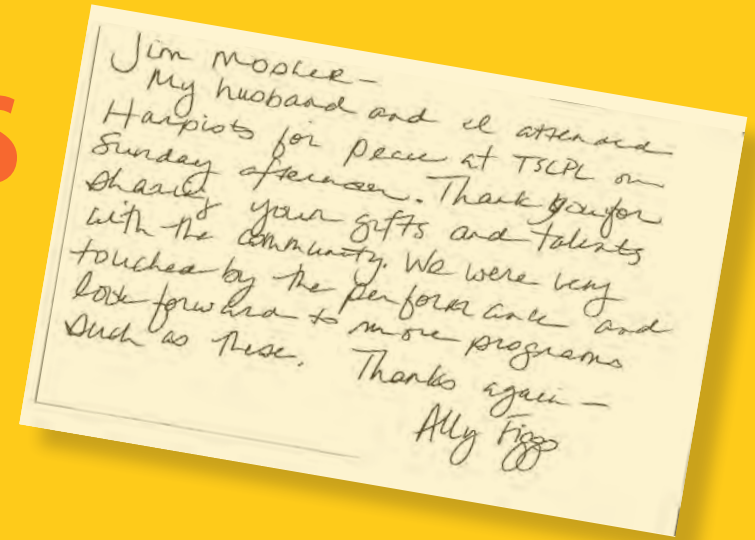 S
Jim Mosher -
My husband and I attended
Harpists for Peace at TSCPL on
Sunday afternoon. Thank you for
sharing your gifts and talents
with the community. We were very
touched by the performance and
look forward to more programs
such as these. Thanks again -
Ally